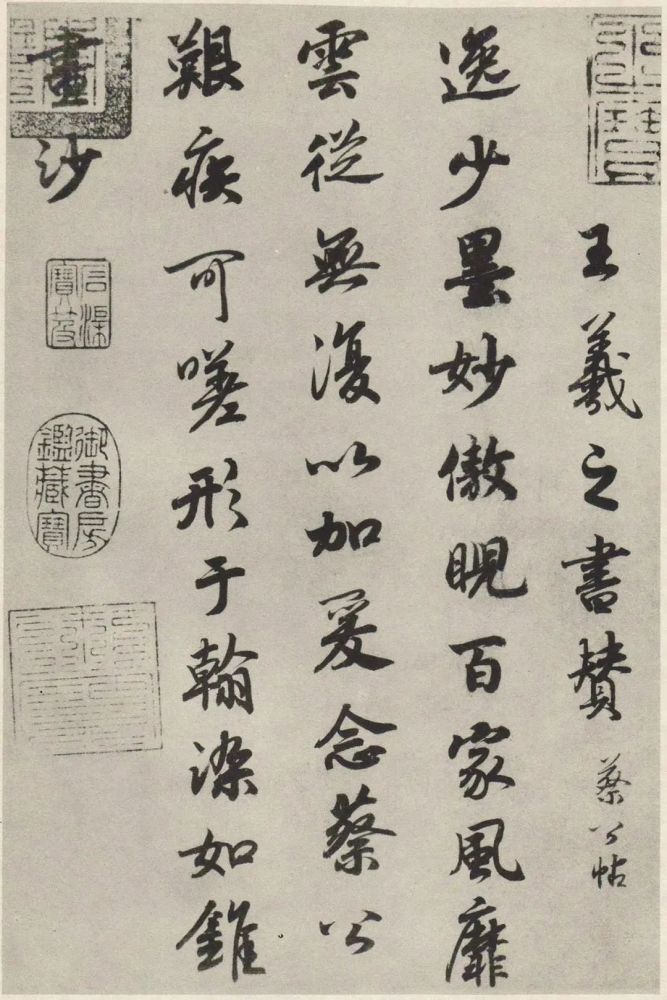 王羲之書賛 蔡公帖
逸少墨妙傲睨百家風靡
雲從無復以加爰念蔡公
艱疾可嗟形于翰染如錐
畫沙
石渠寶笈
御書房鑑藏寶